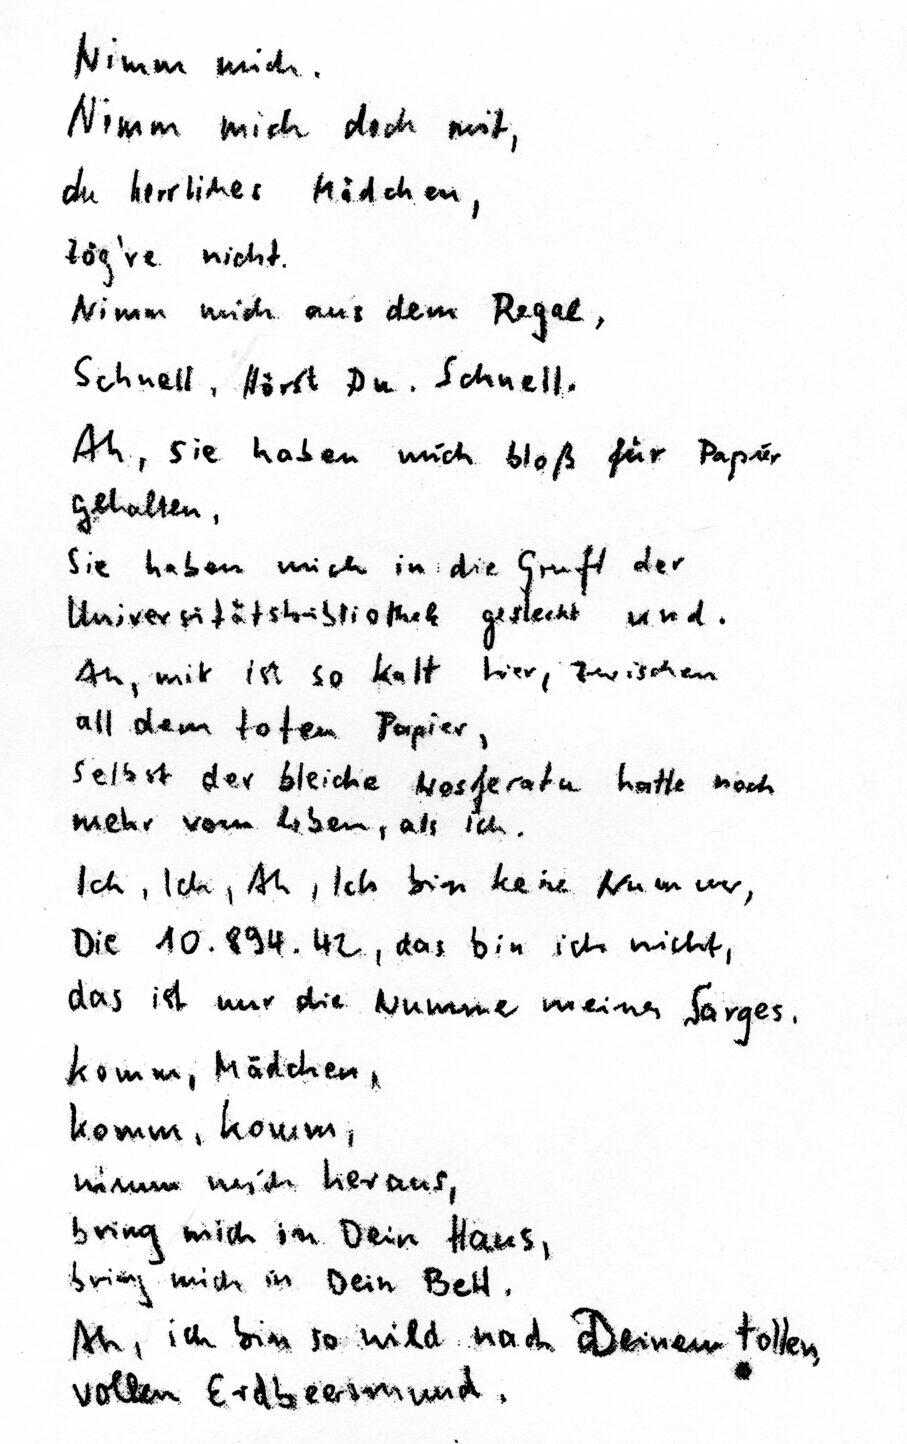 Nimm mich.
Nimm mich doch mit,
du herrliches Mädchen,
zög're nicht.
Nimm mich aus dem Regal,
Schnell, Hörst Du. Schnell.
Ah, sie haben mich bloß für Papier
gehalten,
Sie haben mich in die Gruft der
Universitätsbibliothek gesteckt und.
Ah, mir ist so kalt hier, zwischen
all dem toten Papier,
Selbst der bleiche Nosferatu hatte noch
mehr vom Leben, als ich.
Ich, Ich, Ah, Ich bin keine Nummer,
Die 10.894.42, das bin ich nicht,
das ist nur die Nummer meines Sarges.
komm, Mädchen,
komm, komm,
nimm mich heraus,
bring mich in Dein Haus,
bring mich in Dein Bett.
Ah, ich bin so wild nach Deinem tollen,
vollen Erdbeermund.